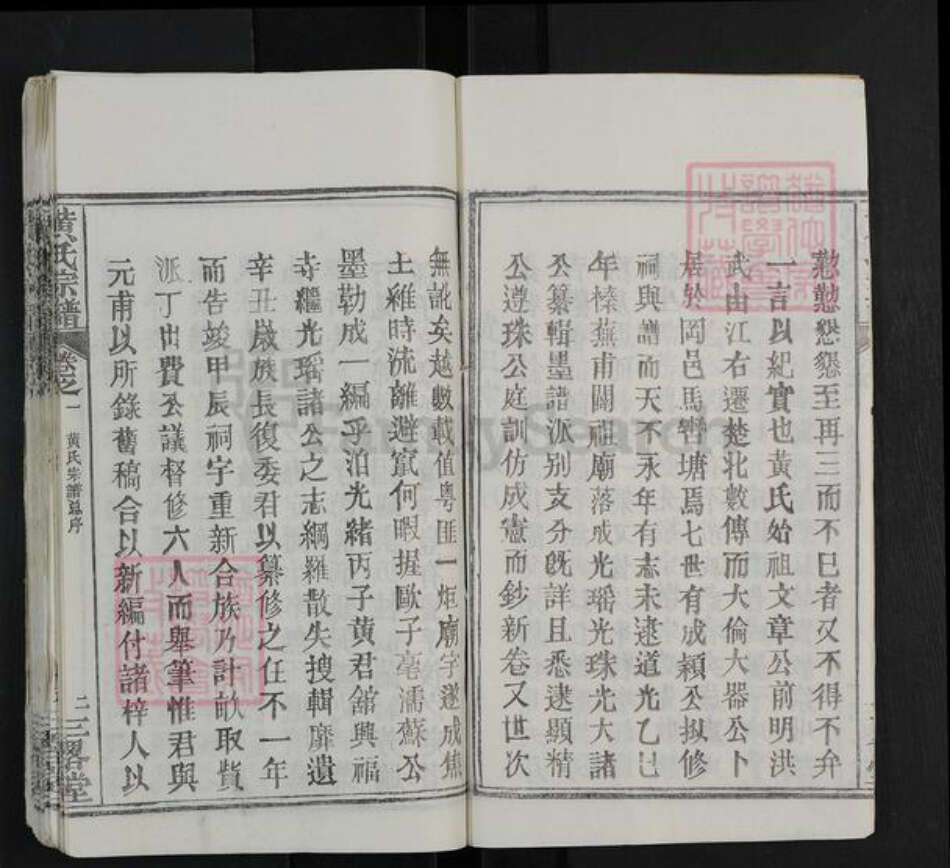 懃懃懇懇至再三而不已者又不得不弁
一言以紀實也黃氏始祖文章公前明洪
武由江右遷楚北數傳而大倫大器公卜
居於岡邑馬轡塘焉七世有成穎公擬修
祠與譜而天不永年有志未逮道光乙巳
年榛蕪甫闢祖廟落成光瑤光珠光大諸
公纂輯墨譜派别支分旣詳且悉逮顯精
公遵珠公庭訓仿成憲而鈔新卷又世次
無訛矣越數載值粵匪一炬廟宇遂成焦
土維時流離避竄何暇握歐子毫濡蘇公
墨勒成一編乎洎光緒丙子黃君舘興福
寺繼光瑤諸公之志網羅散失搜輯靡遺
辛丑歲族長復委君以纂修之任不一年
而告竣甲辰祠宇重新合族乃計畝取貲
派丁出費公議督修六人而舉筆惟君與
元甫以所錄舊稿合以新編付諸梓人以
黃氏宗譜
卷之一
黃氏宗譜
序
二
三畧堂
FamilySearch